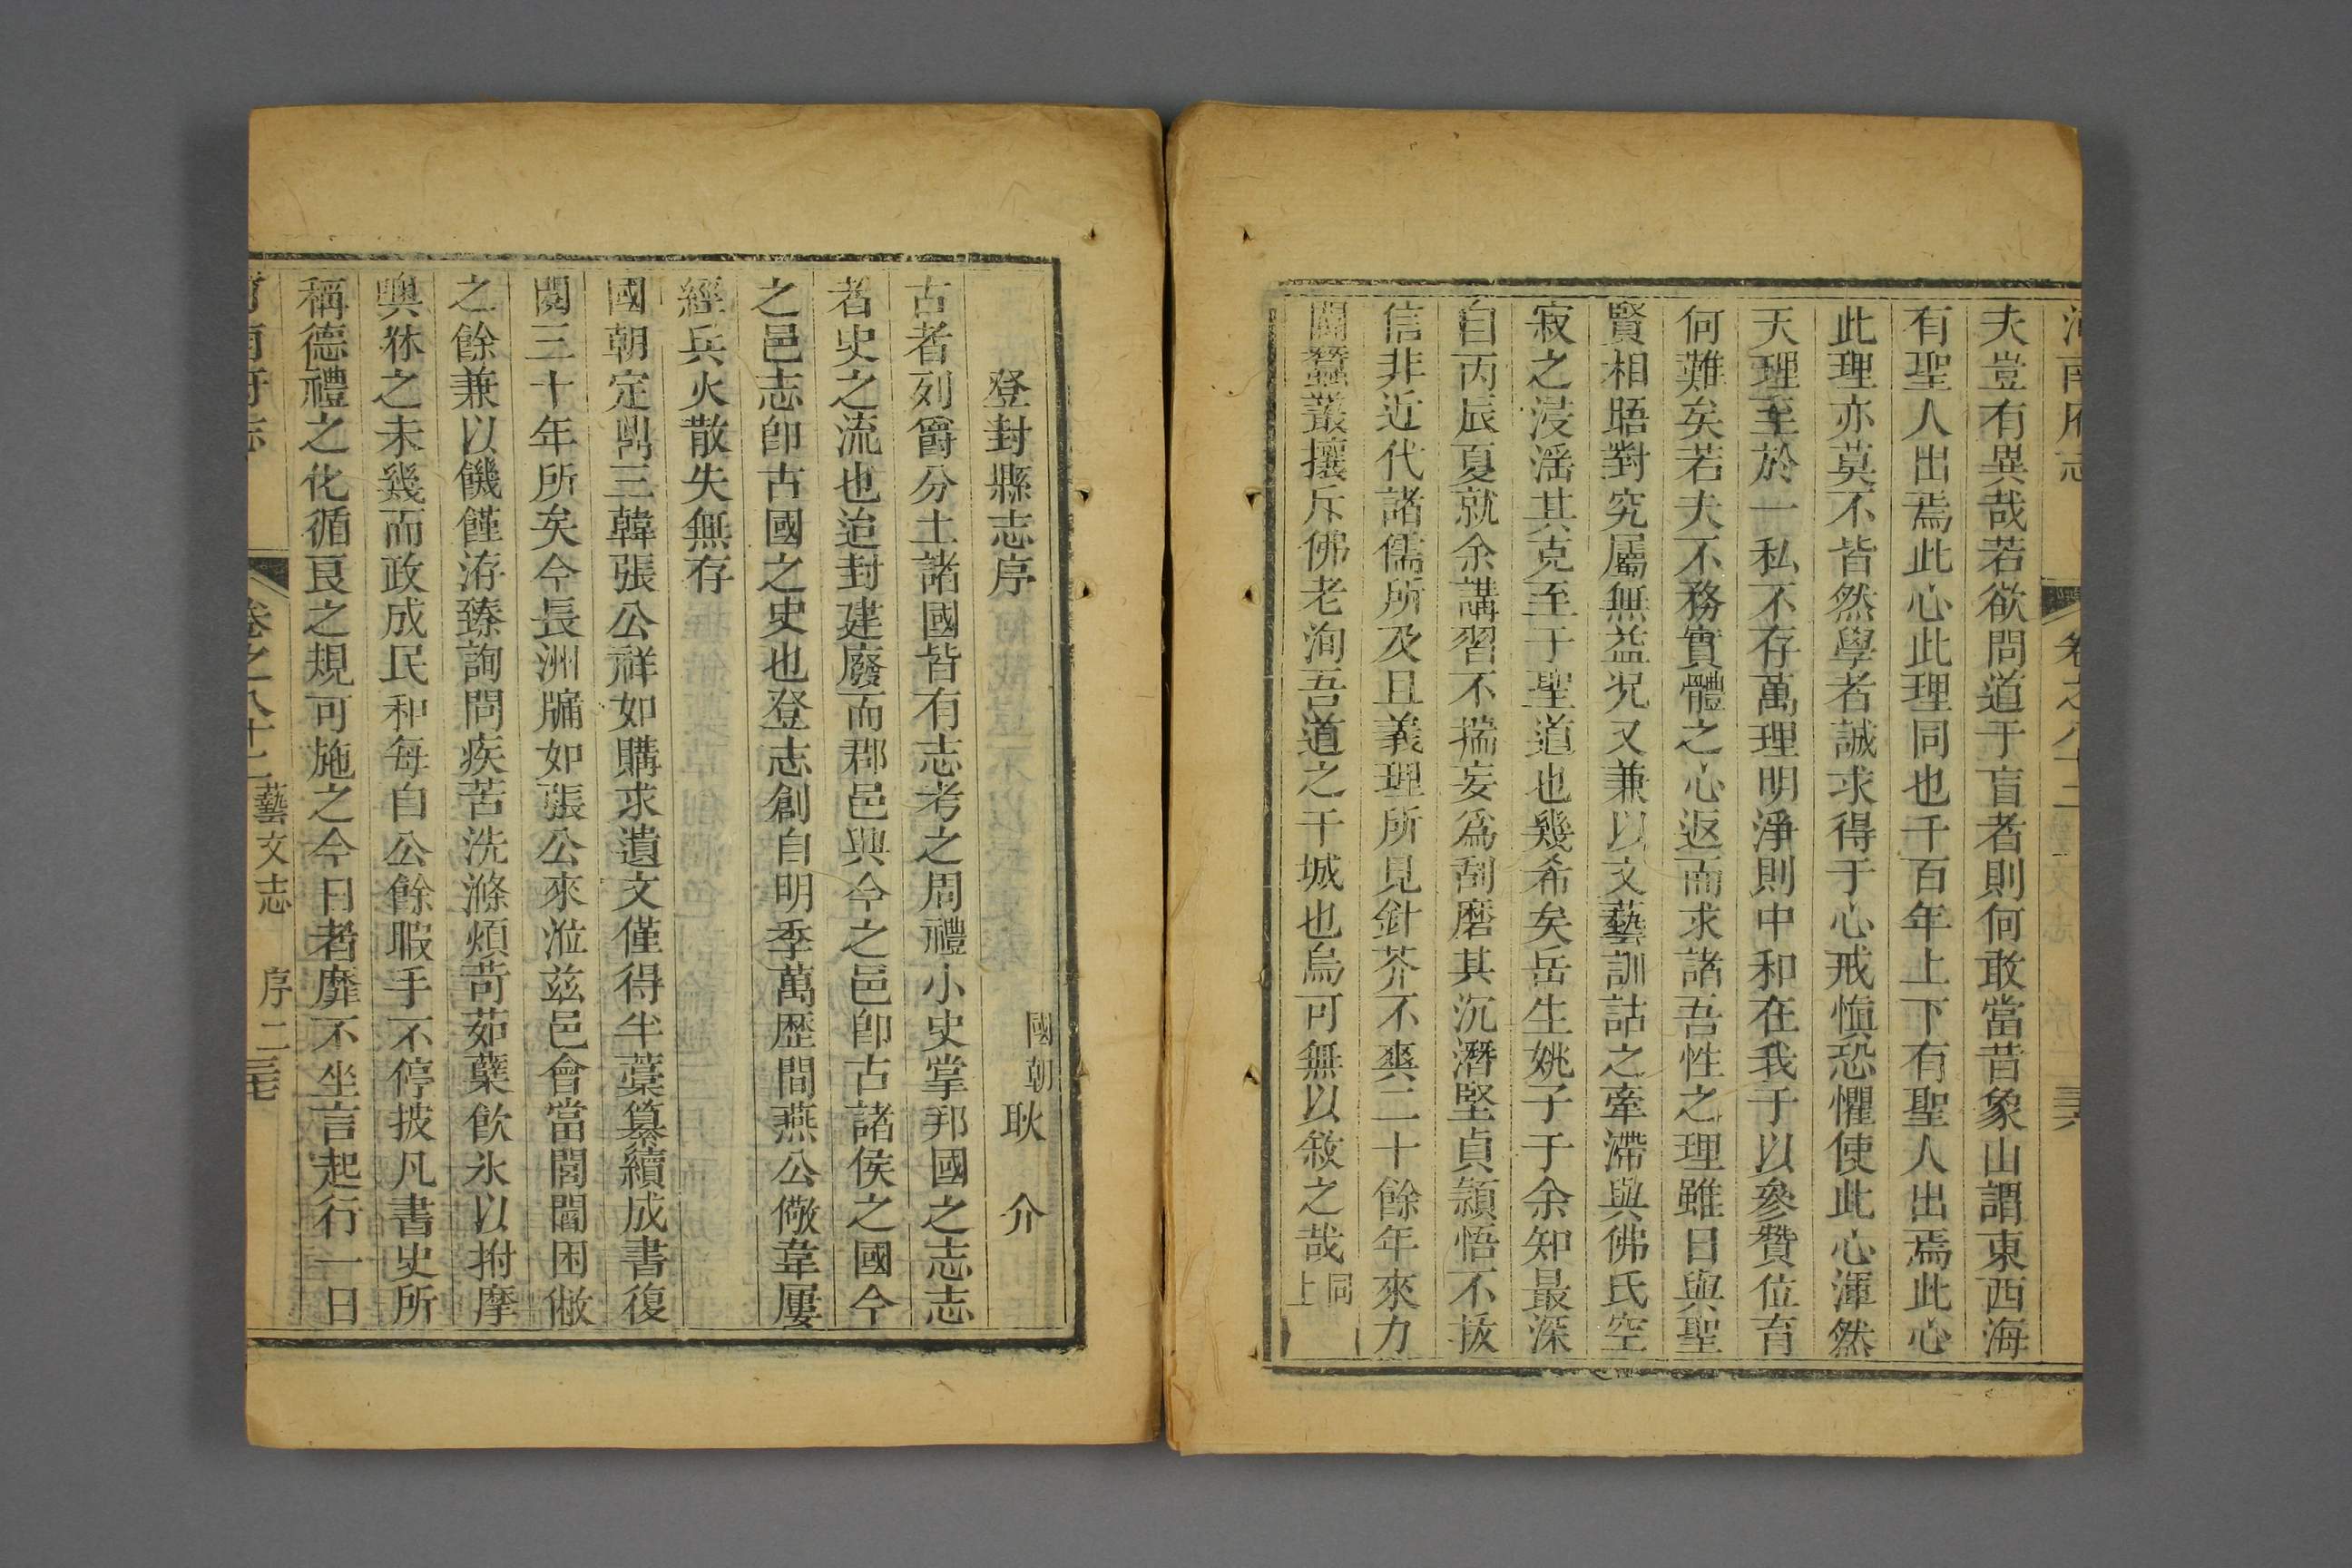 河南府志 卷之八十二 藝文志
夫豈有異哉若欲問道于盲者則何敢當昔象山謂東西海
有聖人出焉此心此理同也千百年上下有聖人出焉此心
此理亦莫不皆然學者誠求得于心戒愼恐懼使此心渾然
天理至於一私不存萬理明淨則中和在我于以參贊位育
何難矣若夫不務實體之心返而求諸吾性之理雖日與聖
賢相晤對究屬無益况又兼以文藝訓詁之牽滯與佛氏空
寂之浸滛其克至于聖道也幾希矣岳生姚子于余知最深
自丙辰夏就余講習不揣妄爲刮磨其沉潛堅貞頴悟不拔
信非近代諸儒所及且義理所見針芥不爽二十餘年來力
闢蠶叢攘斥佛老洵吾道之干城也烏可無以敘之哉同上
登封縣志序 國朝耿 介
古者列爵分土諸國皆有志考之周禮小史掌邦國之志志
者史之流也迨封建廢而郡邑興今之邑卽古諸侯之國今
之邑志卽古國之史也登志創自明季萬歷間燕公儆韋屢
經兵火散失無存
國朝定鼎三韓張公祥如購求遺文僅得半藁纂續成書復
閱三十年所矣今長洲牖如張公來涖兹邑會當閭閻困敝
之餘兼以饑饉洊臻詢問疾苦洗滌煩苛茹蘗飮氷以拊摩
輿休之未幾而政成民和每自公餘暇手不停披凡書史所
稱德禮之化循良之規可施之今日者靡不坐言起行一日
河南府志 卷之八十二 藝文志 序二 三七